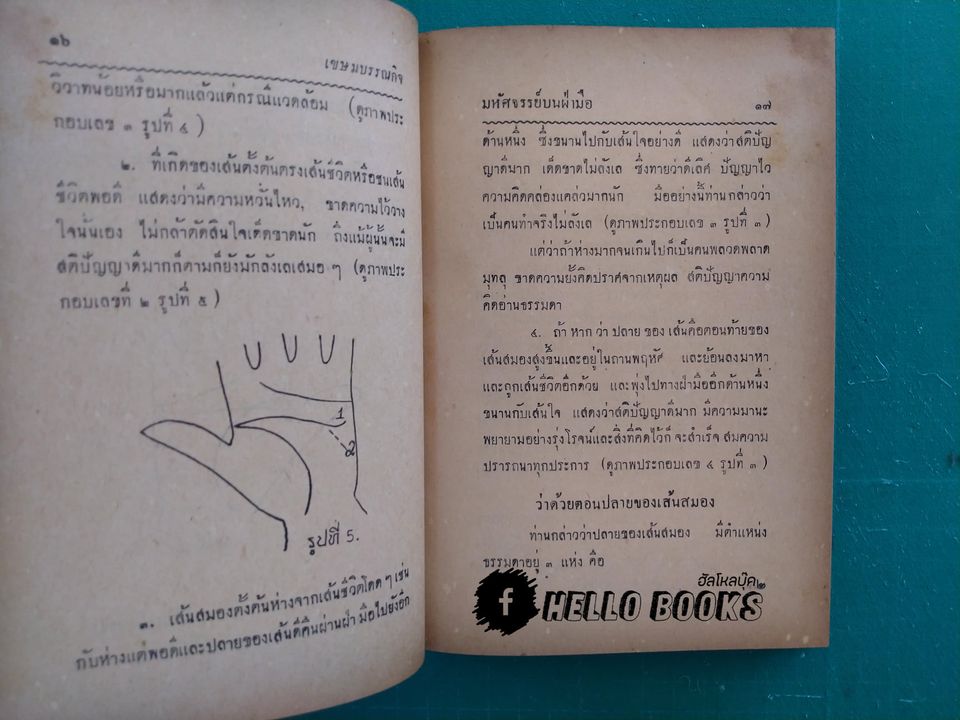 ๑๖
เขษมบรรณกิจ
วิวาทน้อยหรือมากแล้วแต่กรณีแวดล้อม (ดูภาพประ
กอบเลข ๓ รูปที่ ๔)
๒. ที่เกิดของเส้นตั้งต้นตรงเส้นชีวิตหรือชนเส้น
ชีวิตพอดี แสดงว่ามีความหวั่นไหว, ขาดความไว้วาง
ใจนั้นเอง ไม่กล้าตัดสินใจเด็ดขาดนัก ถึงแม้ผู้นั้นจะมี
สติปัญญาดีมากก็ตามก็ยังมักลังเลเสมอ ๆ (ดูภาพประ
กอบเลขที่ ๒ รูปที่ ๕)
1
2
รูปที่ 5.
๓. เส้นสมองตั้งต้นห่างจากเส้นชีวิตโดด ๆ เช่น
กับห่างแต่พอดีและปลายของเส้นดีคืนผ่านฝ่ามือไปยังอีก
มหัศจรรย์บนฝ่ามือ
๑๗
ด้านหนึ่ง ซึ่งขนานไปกับเส้นใจอย่างดี แสดงว่าสติปัญ
ญาดีมาก เด็ดขาดไม่ลังเล ซึ่งทายว่าดีเลิศ ปัญญาไว
ความคิดคล่องแคล่วมากนัก มืออย่างนี้ท่านกล่าวว่า
เป็นคนทำจริงไม่ลังเล (ดูภาพประกอบเลข ๓ รูปที่ ๓)
แต่ว่าถ้าห่างมากจนเกินไปก็เป็นคนพลวดพลาด
มุทลุ ขาดความยั้งคิดปราศจากเหตุผล สติปัญญาความ
คิดอ่านธรรมดา
๔. ถ้า หาก ว่า ปลาย ของ เส้นคือตอนท้ายของ
เส้นสมองสูงขึ้นและอยู่ในถานพฤหัศ และย้อนลงมาหา
และถูกเส้นชีวิตอีกด้วย และพุ่งไปทางฝ่ามืออีกด้านหนึ่ง
ขนานกับเส้นใจ แสดงว่าสติปัญญาดีมาก มีความมานะ
พยายามอย่างรุ่งโรจน์และสิ่งที่คิดไว้ก็ จะสำเร็จ สมความ
ปรารถนาทุกประการ (ดูภาพประกอบเลข ๔ รูปที่ ๓)
ว่าด้วยตอนปลายของเส้นสมอง
ท่านกล่าวว่าปลายของเส้นสมอง มีตำแหน่ง
ธรรมดาอยู่ ๓ แห่ง คือ
ฮัลโหลบุ๊ค
f HELLO BOOKS